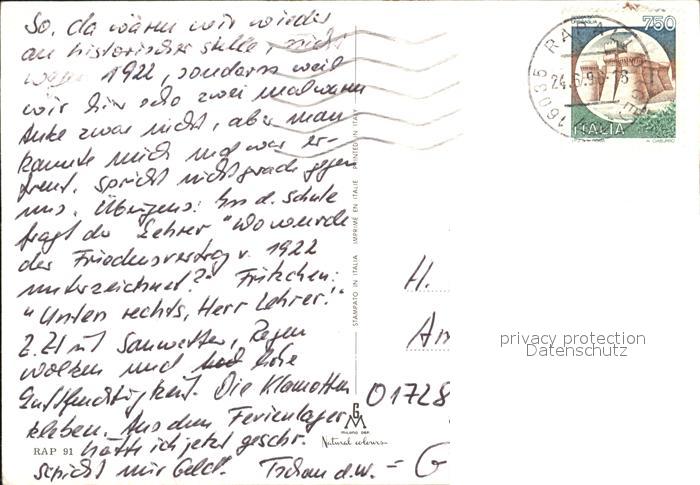 So, da wären wir wieder
an historischer Stelle, nicht
wegen 1922, sondern weil
wir hier schon zwei mal waren
Anke zwar nicht, aber man
kannte mich und war er-
freut. Spricht nicht grade gegen
uns. Übrigens: In d. Schule
fragt der Lehrer "Wo wurde
der Friedensvertrag v. 1922
unterzeichnet?" Fritzchen:
"Unten rechts, Herr Lehrer!"
Z.Zt ist Sauwetter, Regen
wolken und hohe
Luftfeuchtigkeit. Die Klamotten
kleben. Aus dem Ferienlager
hätte ich jetzt geschr.
Schickt mir Geld. Tschau d.w. = G
RAP 91
STAMPATO IN ITALIA IMPRIMÉ EN ITALIE PRINTED IN ITALY
GM
MILANO DEP.
Natural colours
750
ITALIA
16035 RAPALLO
24.6.9
H.
An
01728
privacy protection
Datenschutz